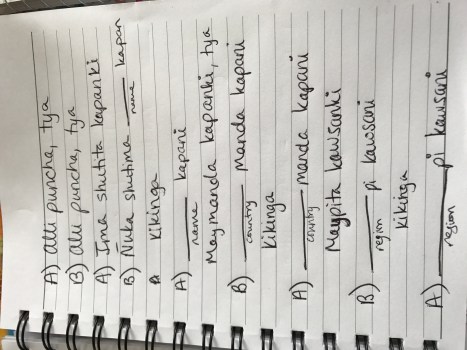 A) alli puncha, tya
B) alli puncha, tya
A) Ima shutita kapanki
B) Ñuka shutima ___ kapan
name
kikinga
A) ___ kapani
name
Maymanda kapanki, tya
B) ___ manda kapani
country
kikinga
A) ___ manda kapani
country
Maypita kawsanki
B) ___ pi kawsani
region
kikinga
A) ___ pi kawsani
region